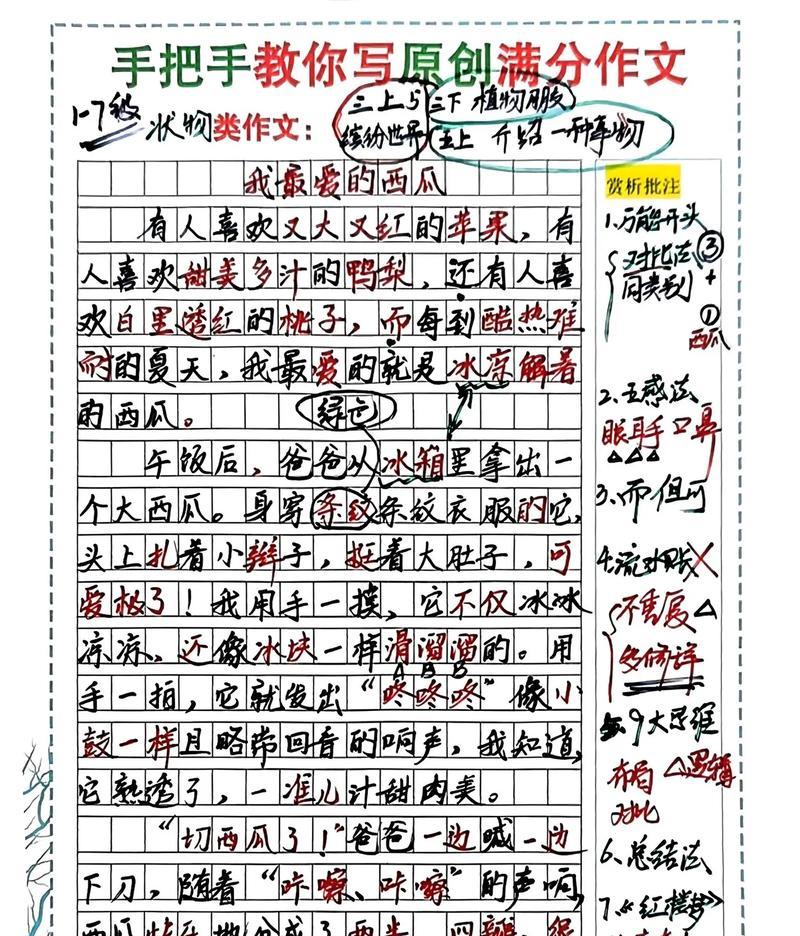 手把手教你写原创满分作文
1-7级 状物类作文：
三上5 缤纷世界
三下 植物朋友
五上 介绍一种事物
我最爱的西瓜
有人喜欢又大又红的苹果，有
人喜欢甜美多汁的鸭梨，还有人喜
欢白里透红的桃子，而每到酷热难
耐的夏天，我最爱的就是冰凉解暑
的西瓜。
绿色
午饭后，爸爸从冰箱里拿出一
个大西瓜。身穿条纹条纹衣服的它，
头上扎着小辫子，挺着大肚子，可
爱极了！我用手一摸，它不仅冰冰
凉凉、还像冰块一样滑溜溜的。用
A B B
手一拍，它就发出“咚咚咚”像小
鼓一样且略带回音的响声，我知道，
它熟透了，一准儿汁甜肉美。
“切西瓜了！”爸爸一边喊一边
下刀，随着“咔嚓、咔嚓”的声响，
赏析批注
1.万能开头
对比法 ③
同类别 +
① 西瓜
2.五感法
眼耳手口鼻
3.而 但 可
4.流水账X
不重复
多修辞
9大思维
布局 逻辑
对比
6.总结法
7.《红楼梦》